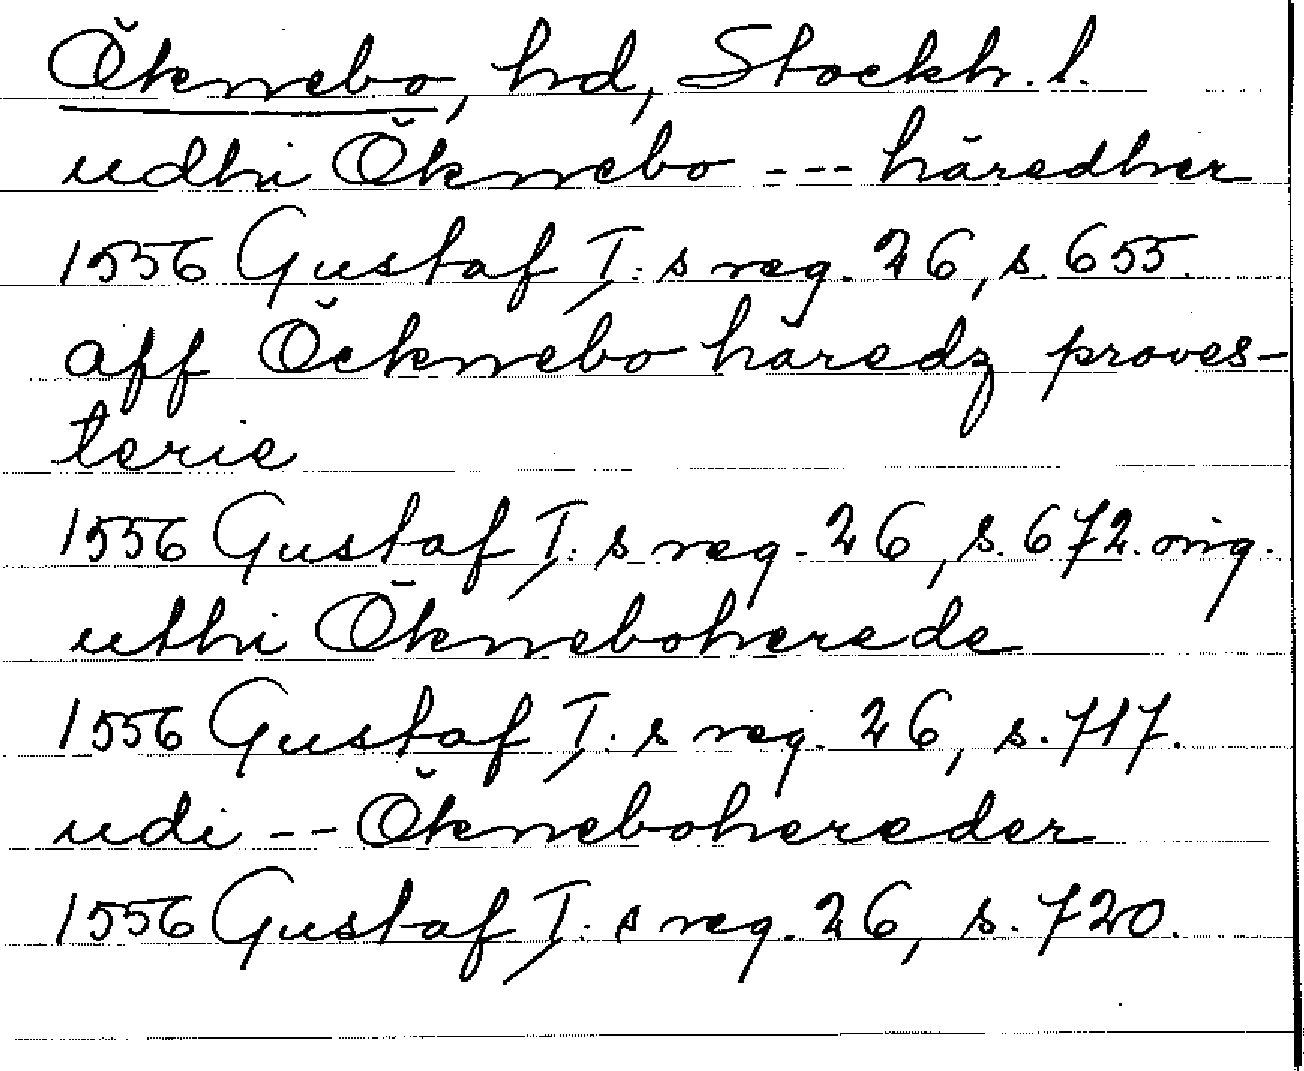 Öknebo, hd, Stockh. l.
udhi Öknebo --- häredher
1556 Gustaf I: s reg. 26, s. 655.
aff Öcknebo häredz proves-
terie
1556 Gustaf I: s reg. 26, s. 672. orig.
uthi Ökneboherede
1556 Gustaf I: s reg. 26, s. 717.
udi -- Öknebohereder
1556 Gustaf I: s reg. 26, s. 720.